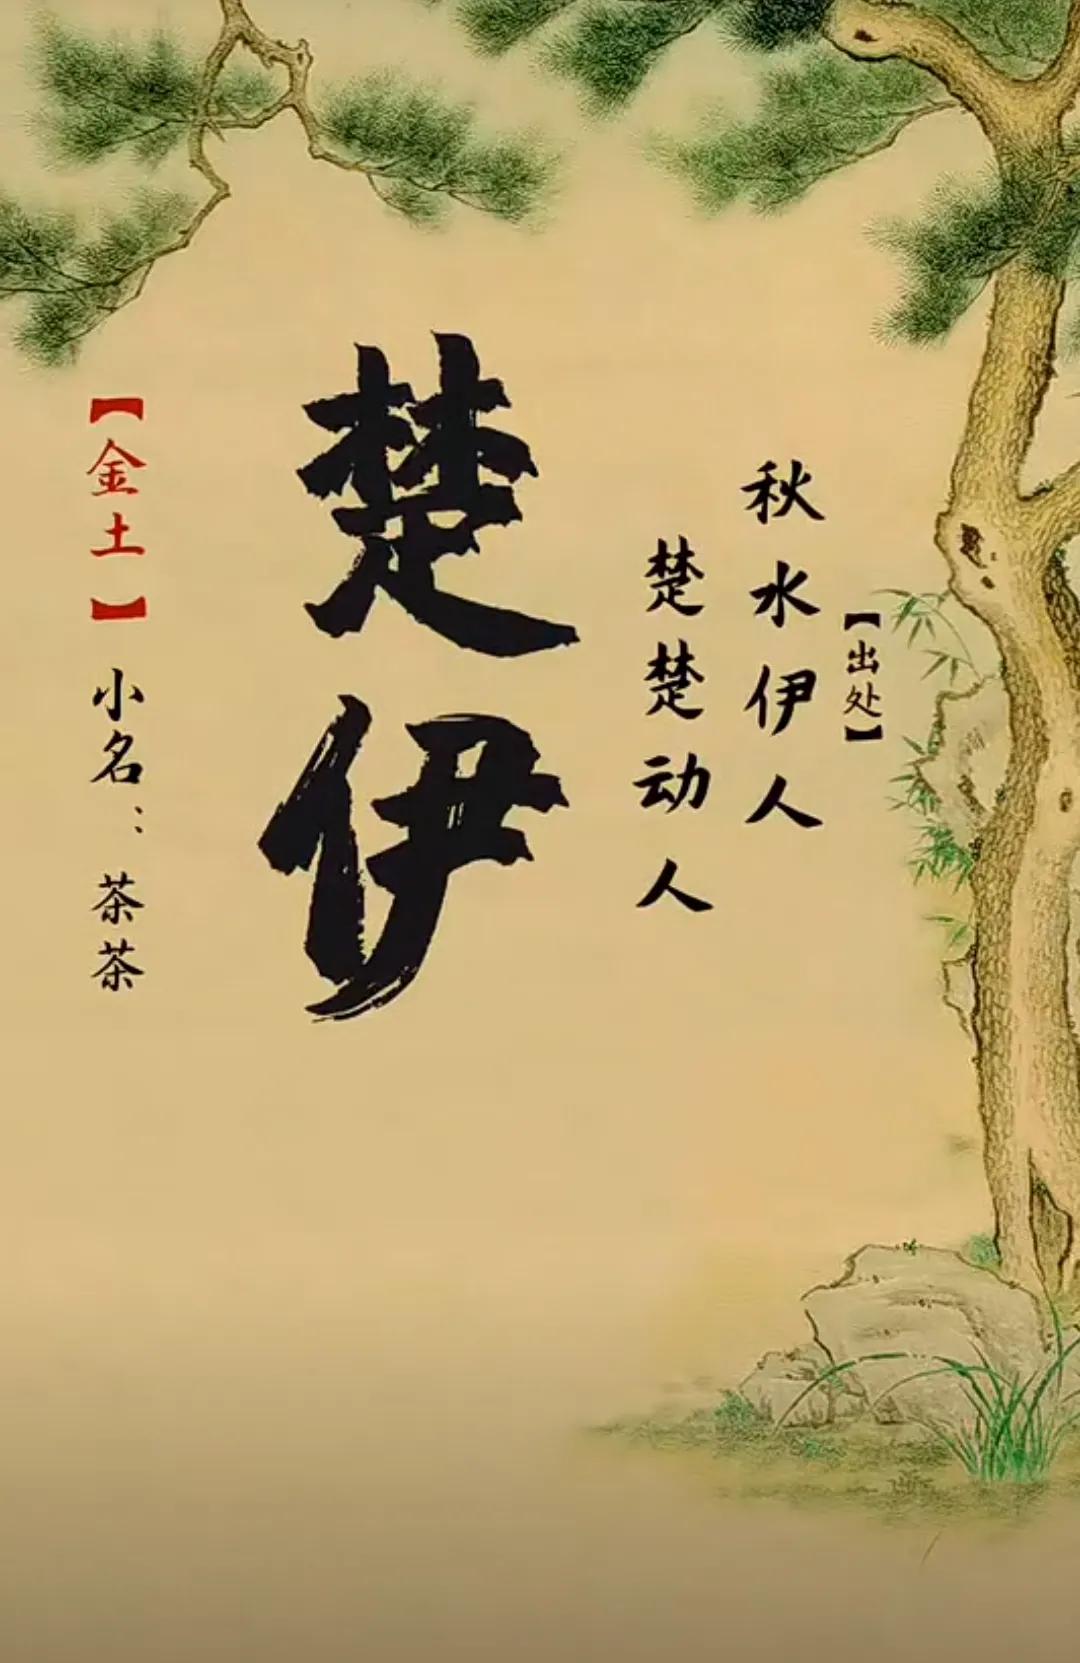 【出处】
秋水伊人
楚楚动人
楚伊
【金土】小名：茶茶